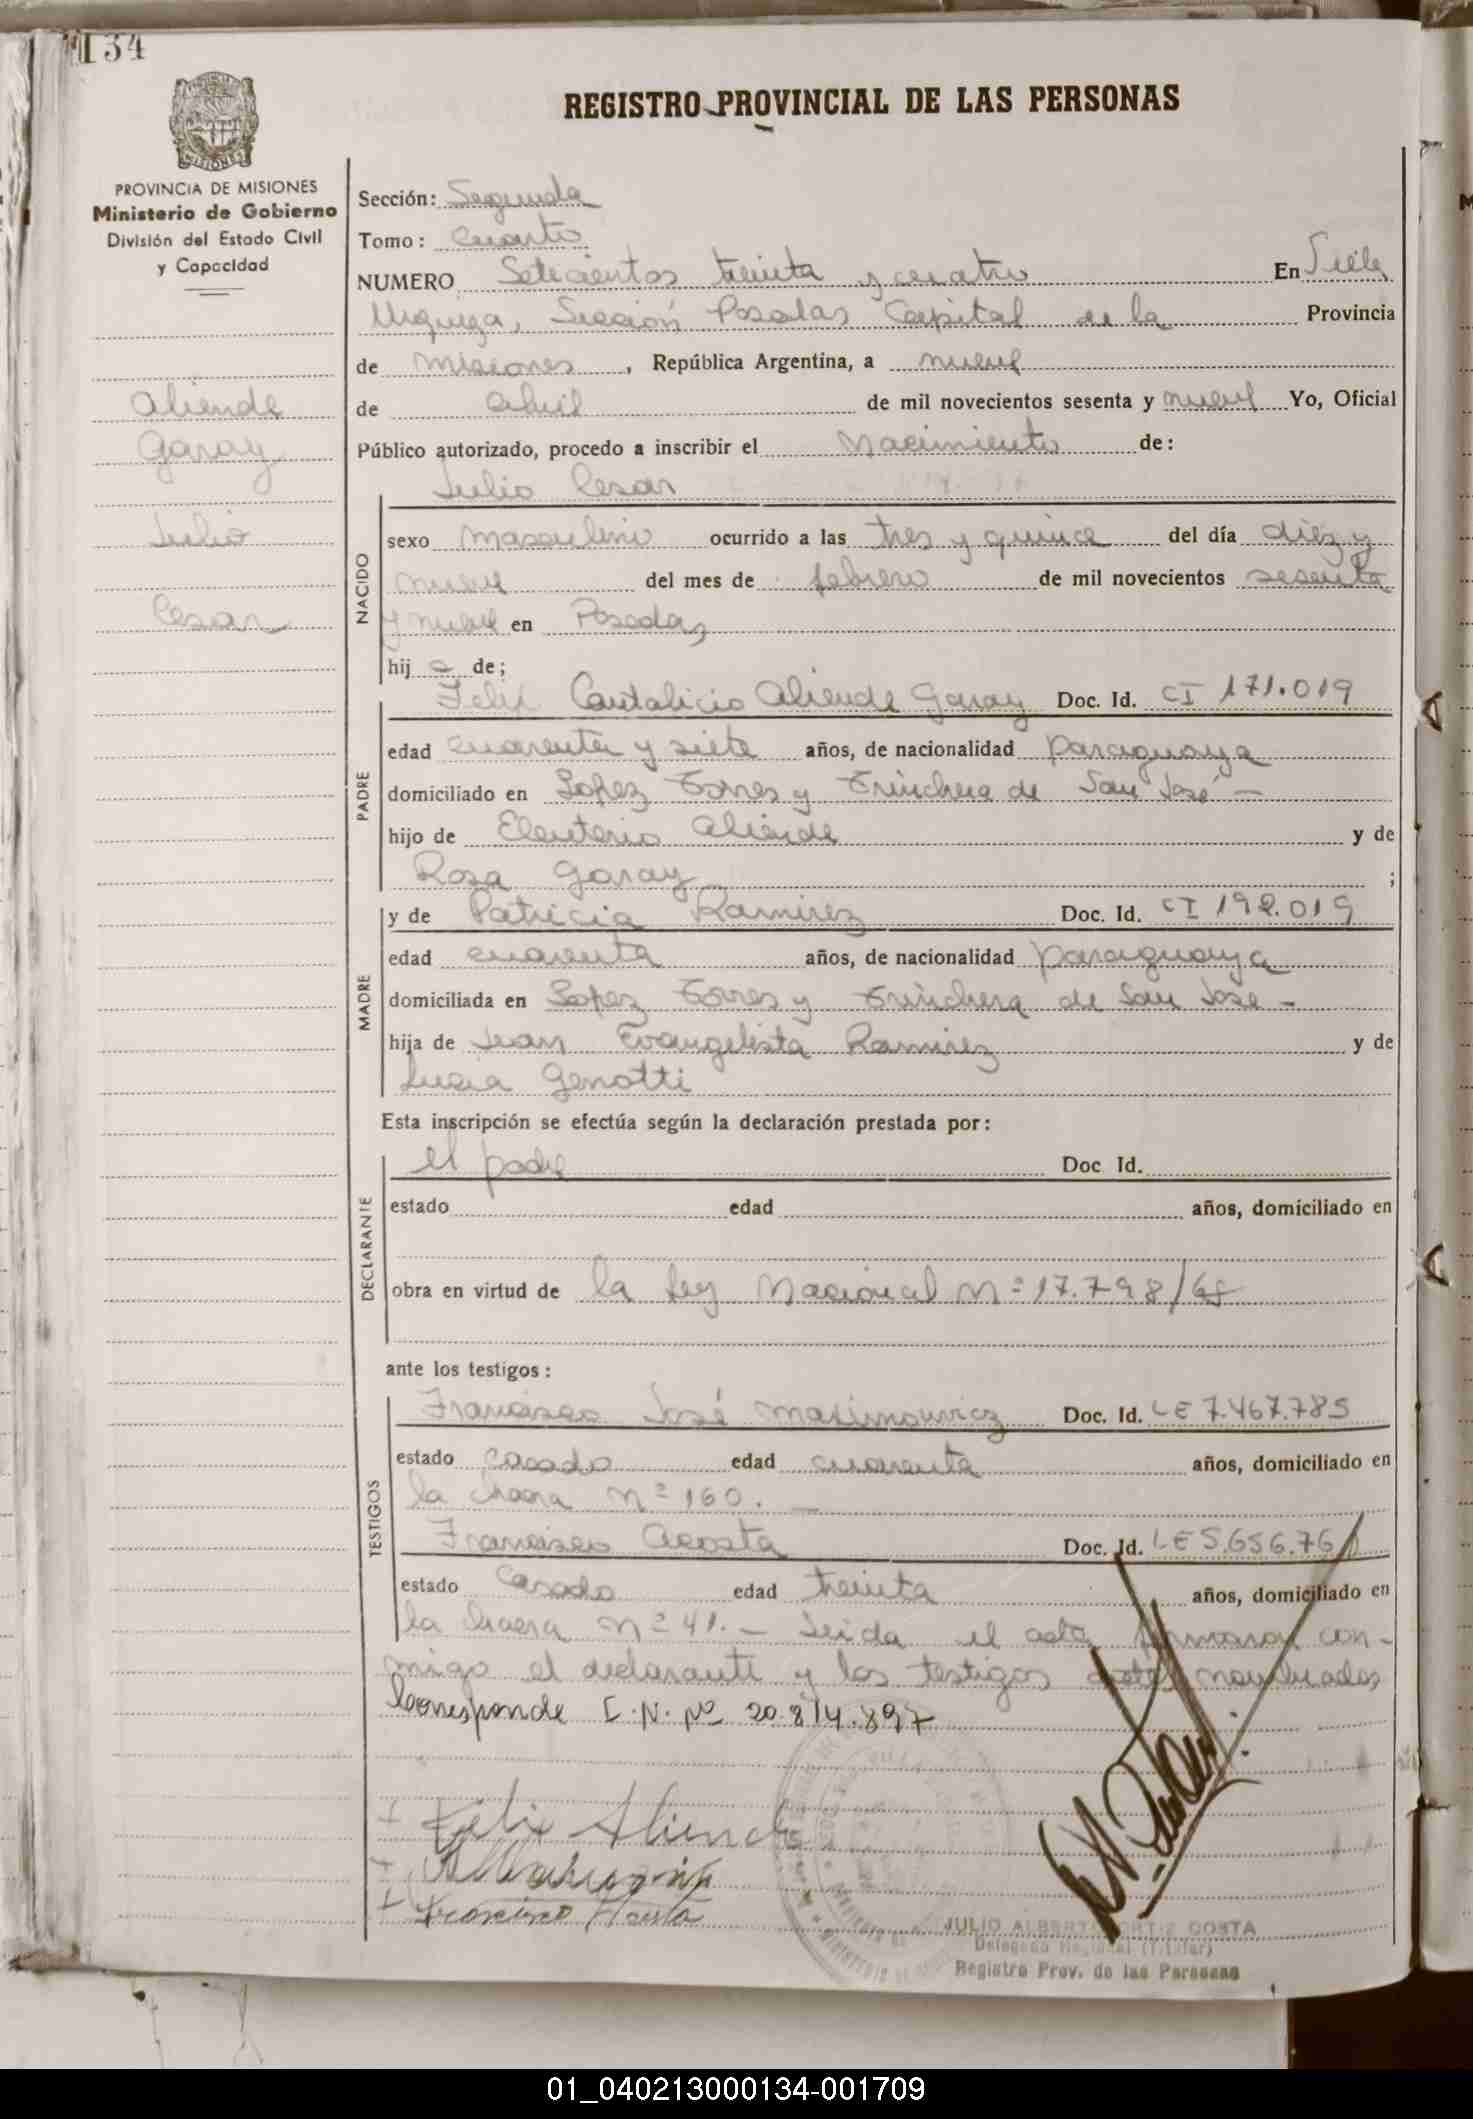 134
REGISTRO PROVINCIAL DE LAS PERSONAS
MISIONES
PROVINCIA DE MISIONES
Ministerio de Gobierno
División del Estado Civil
y Capacidad
Aliende
Garay
Julio
Cesar
Sección: Segunda
Tomo: Cuarto
NUMERO Setecientos treinta y cuatro En Villa
Urquiza, Sección Posadas Capital de la Provincia
de Misiones, República Argentina, a nueve
de abril de mil novecientos sesenta y nueve Yo, Oficial
Público autorizado, procedo a inscribir el Nacimiento de:
Julio Cesar
NACIDO
sexo masculino ocurrido a las tres y quince del día diez y
nueve del mes de febrero de mil novecientos sesenta
y nueve en Posadas
hijo de;
Felix Cantalicio Aliende Garay Doc. Id. CI 171.019
PADRE
edad cuarenta y siete años, de nacionalidad paraguaya
domiciliado en Lopez Torres y Trinchera de San José -
hijo de Eleuterio Aliende y de
Rosa Garay ;
y de Patricia Ramirez Doc. Id. CI 192.019
MADRE
edad cuarenta años, de nacionalidad paraguaya
domiciliada en Lopez Torres y Trinchera de San Jose -
hija de Juan Evangelista Ramirez y de
Lucia Genotti
Esta inscripción se efectúa según la declaración prestada por:
DECLARANTE
el padre Doc Id.
estado edad años, domiciliado en
obra en virtud de la Ley Nacional Nº 17.798/68
ante los testigos:
TESTIGOS
Francisco José Doc. Id. LE 7.467.785
estado casado edad cuarenta años, domiciliado en
la chacra nº 160. -
Francisco Acosta Doc. Id. LE 5.656.76
estado Casado edad treinta años, domiciliado en
la chacra nº 41. - Leida el acta firmaron con-
migo el declarante y los testigos nombrados
Corresponde I.N. Nº 20.814.897
Felix Aliende
Francisco Acosta
JULIO ALBERTO ORTIZ COSTA
Delegado Regional (Titular)
Registro Prov. de las Personas
01_040213000134-001709